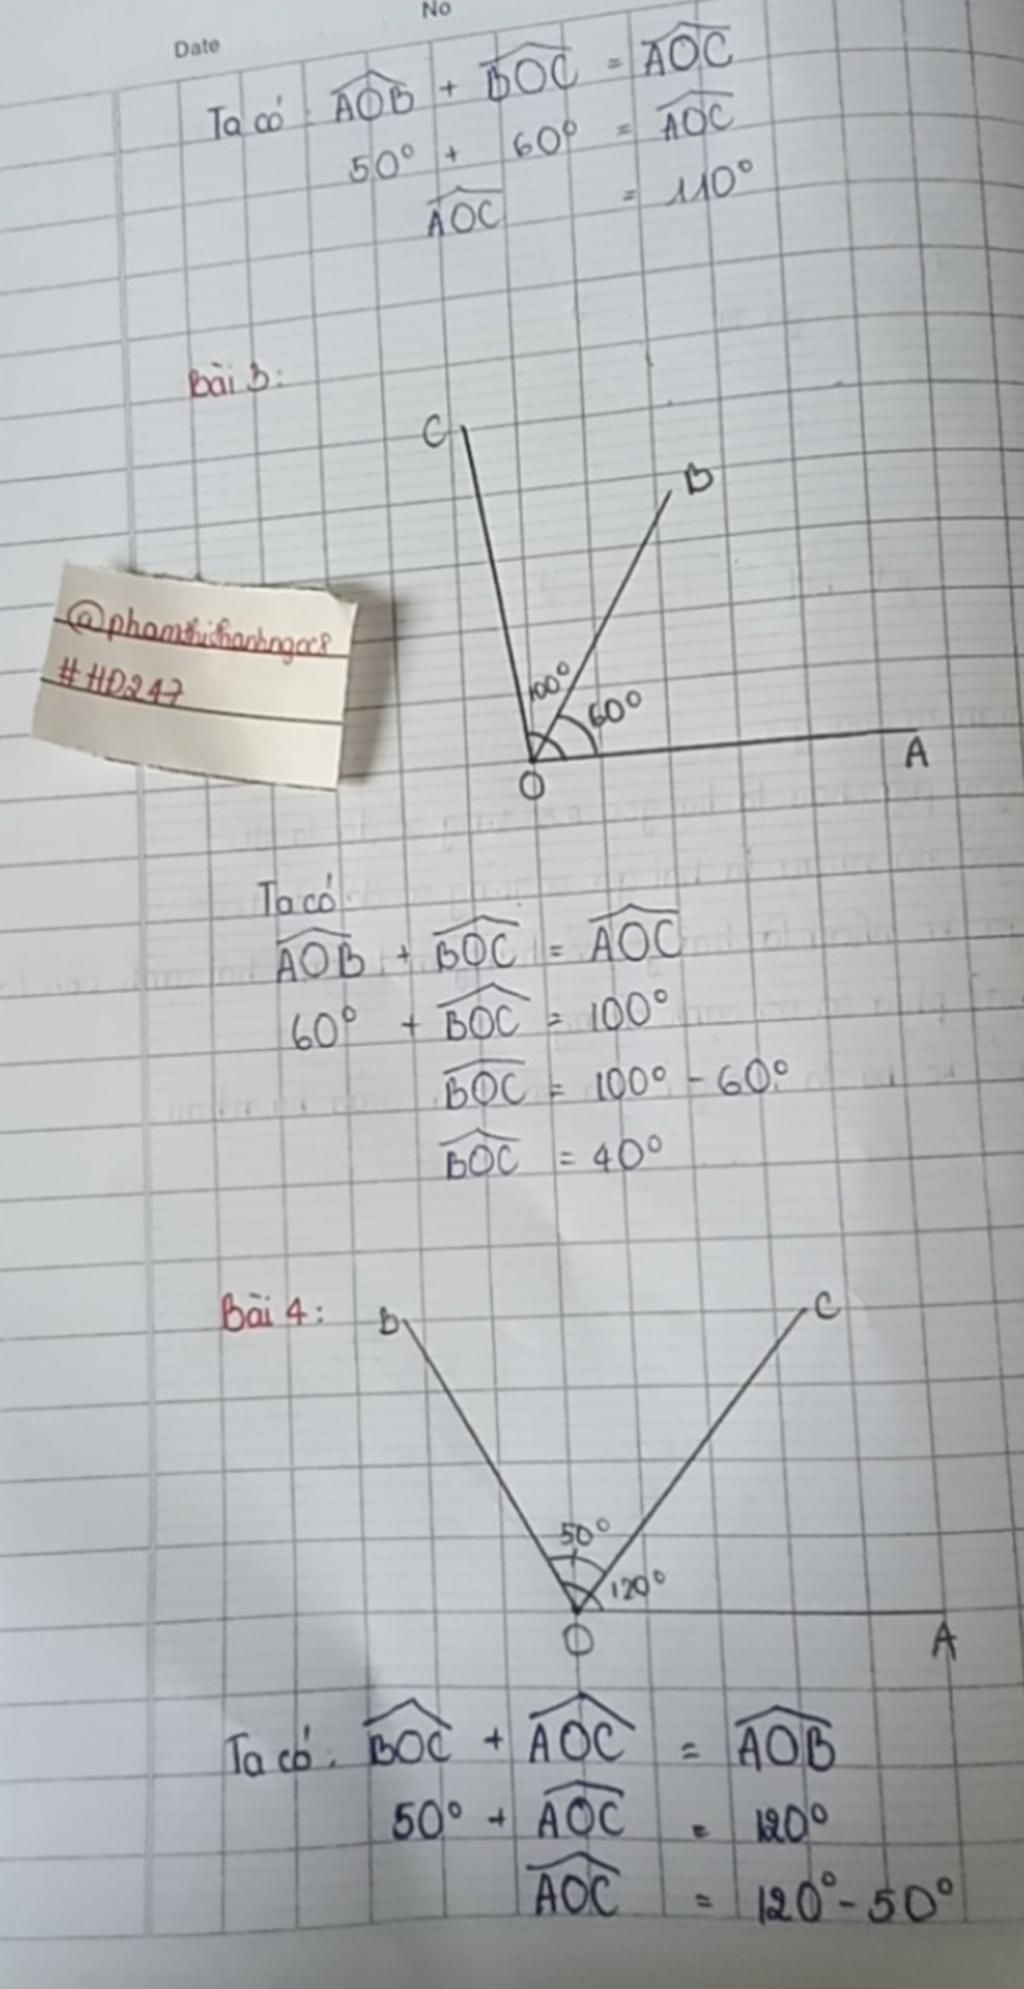 No
Date
Ta có: AOB + BOC = AOC
50° + 60° = AOC
AOC = 110°
Bài 3:
C
B
100°
60°
A
O
@phamthithanhngoc8
#HD247
Ta có
AOB + BOC = AOC
60° + BOC = 100°
BOC = 100° - 60°
BOC = 40°
Bài 4:
B
C
50°
120°
O
A
Ta có: BOC + AOC = AOB
50° + AOC = 120°
AOC = 120° - 50°